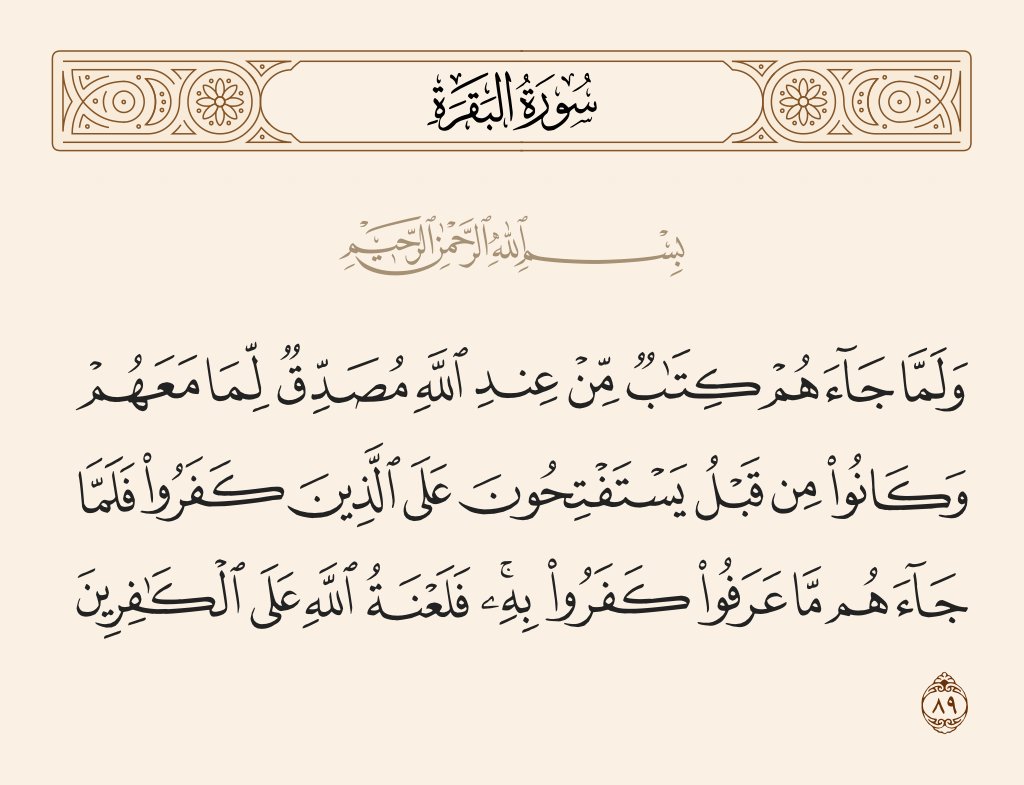 سُورَةُ البَقَرَةِ
بِسْمِ ٱللَّهِ ٱلرَّحْمَٰنِ ٱلرَّحِيمِ
وَلَمَّا جَآءَهُمْ كِتَٰبٌ مِّنْ عِندِ ٱللَّهِ مُصَدِّقٌ لِّمَا مَعَهُمْ
وَكَانُوا۟ مِن قَبْلُ يَسْتَفْتِحُونَ عَلَى ٱلَّذِينَ كَفَرُوا۟ فَلَمَّا
جَآءَهُم مَّا عَرَفُوا۟ كَفَرُوا۟ بِهِۦۚ فَلَعْنَةُ ٱللَّهِ عَلَى ٱلْكَٰفِرِينَ
٨٩